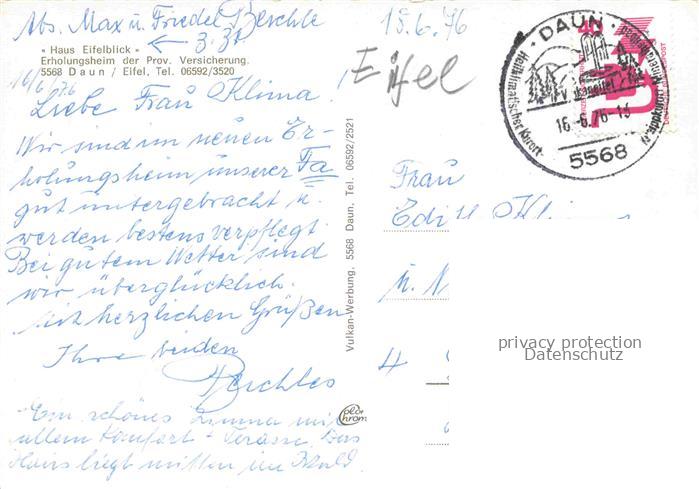 Abs. Max u. Friedel Perchle
15.6.76
« Haus Eifelblick » ← z. Zt.
Erholungsheim der Prov. Versicherung.
5568 Daun / Eifel, Tel. 06592/3520
16/6 76
Eifel
Liebe Frau Klima !
Wir sind im neuen Er-
holungsheim unserer Fa
gut untergebracht u.
werden bestens verpflegt.
Bei gutem Wetter sind
wir überglücklich.
Mit herzlichen Grüßen
Ihre beiden
Perchles
Ein schönes Zimmer mit
allem Komfort + Terasse. Das
Haus liegt mitten im Wald.
Vulkan-Werbung, 5568 Daun, Tel. 06592/2521
colorchrom
DAUN
Heilklimatischer Kurort
16.-6.76-13
5568
40
Frau
u.
4
privacy protection
Datenschutz